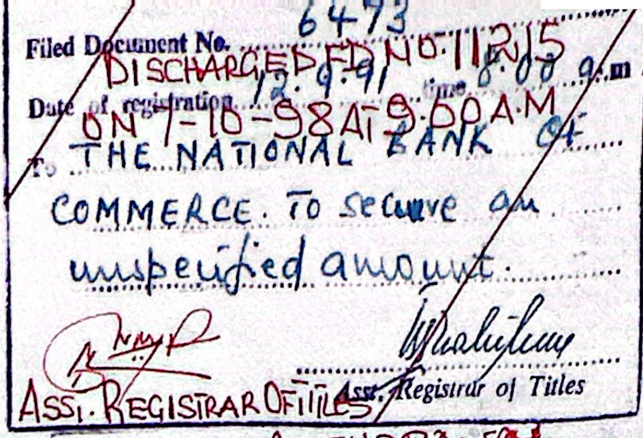 Filed Document No. 6473
DISCHARGED FD NO. 11215
Date of registration 12.9.91 time 8.00 a.m
ON 1-10-98 AT 9.00 A.M
To THE NATIONAL BANK OF
COMMERCE. To secure an
unspecified amount.
Asst. Registrar of Titles
ASST. REGISTRAR OF TITLES